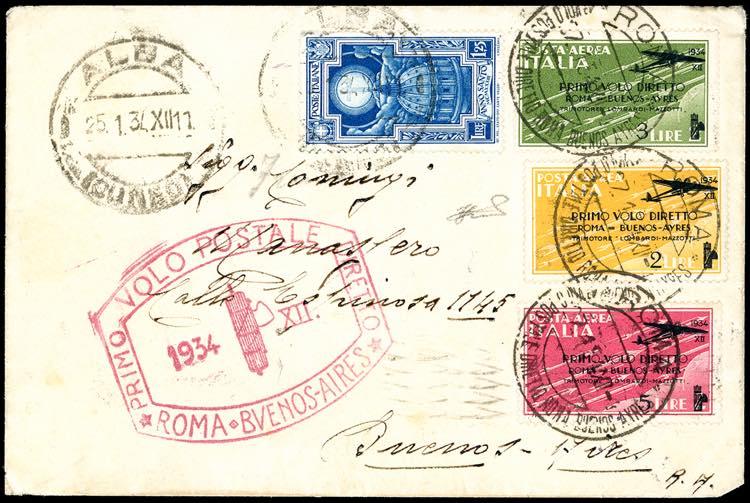 ALBA
25.1.34.XII 11
(CUNEO)
ALBA
POSTE ITALIANE
1,25
LIRE
ANNO SANTO
POSTA AEREA
ITALIA
1934
XII
PRIMO VOLO DIRETTO
ROMA = BUENOS-AYRES
TRIMOTORE LOMBARDI-MAZZOTTI
3 LIRE
ROMA
POSTA AEREA
ITALIA
1934
XII
PRIMO VOLO DIRETTO
ROMA = BUENOS-AYRES
TRIMOTORE "LOMBARDI-MAZZOTTI"
2 LIRE
ROMA
POSTA AEREA
ITALIA
1934
XII
PRIMO VOLO DIRETTO
ROMA = BUENOS-AYRES
TRIMOTORE LOMBARDI-MAZZOTTI
5 LIRE
ROMA
Sigr.
Calle Espinosa 1145
Buenos-Aires
R.A.
PRIMO VOLO POSTALE DIRETTO
1934 XII.
ROMA BVENOS-AIRES